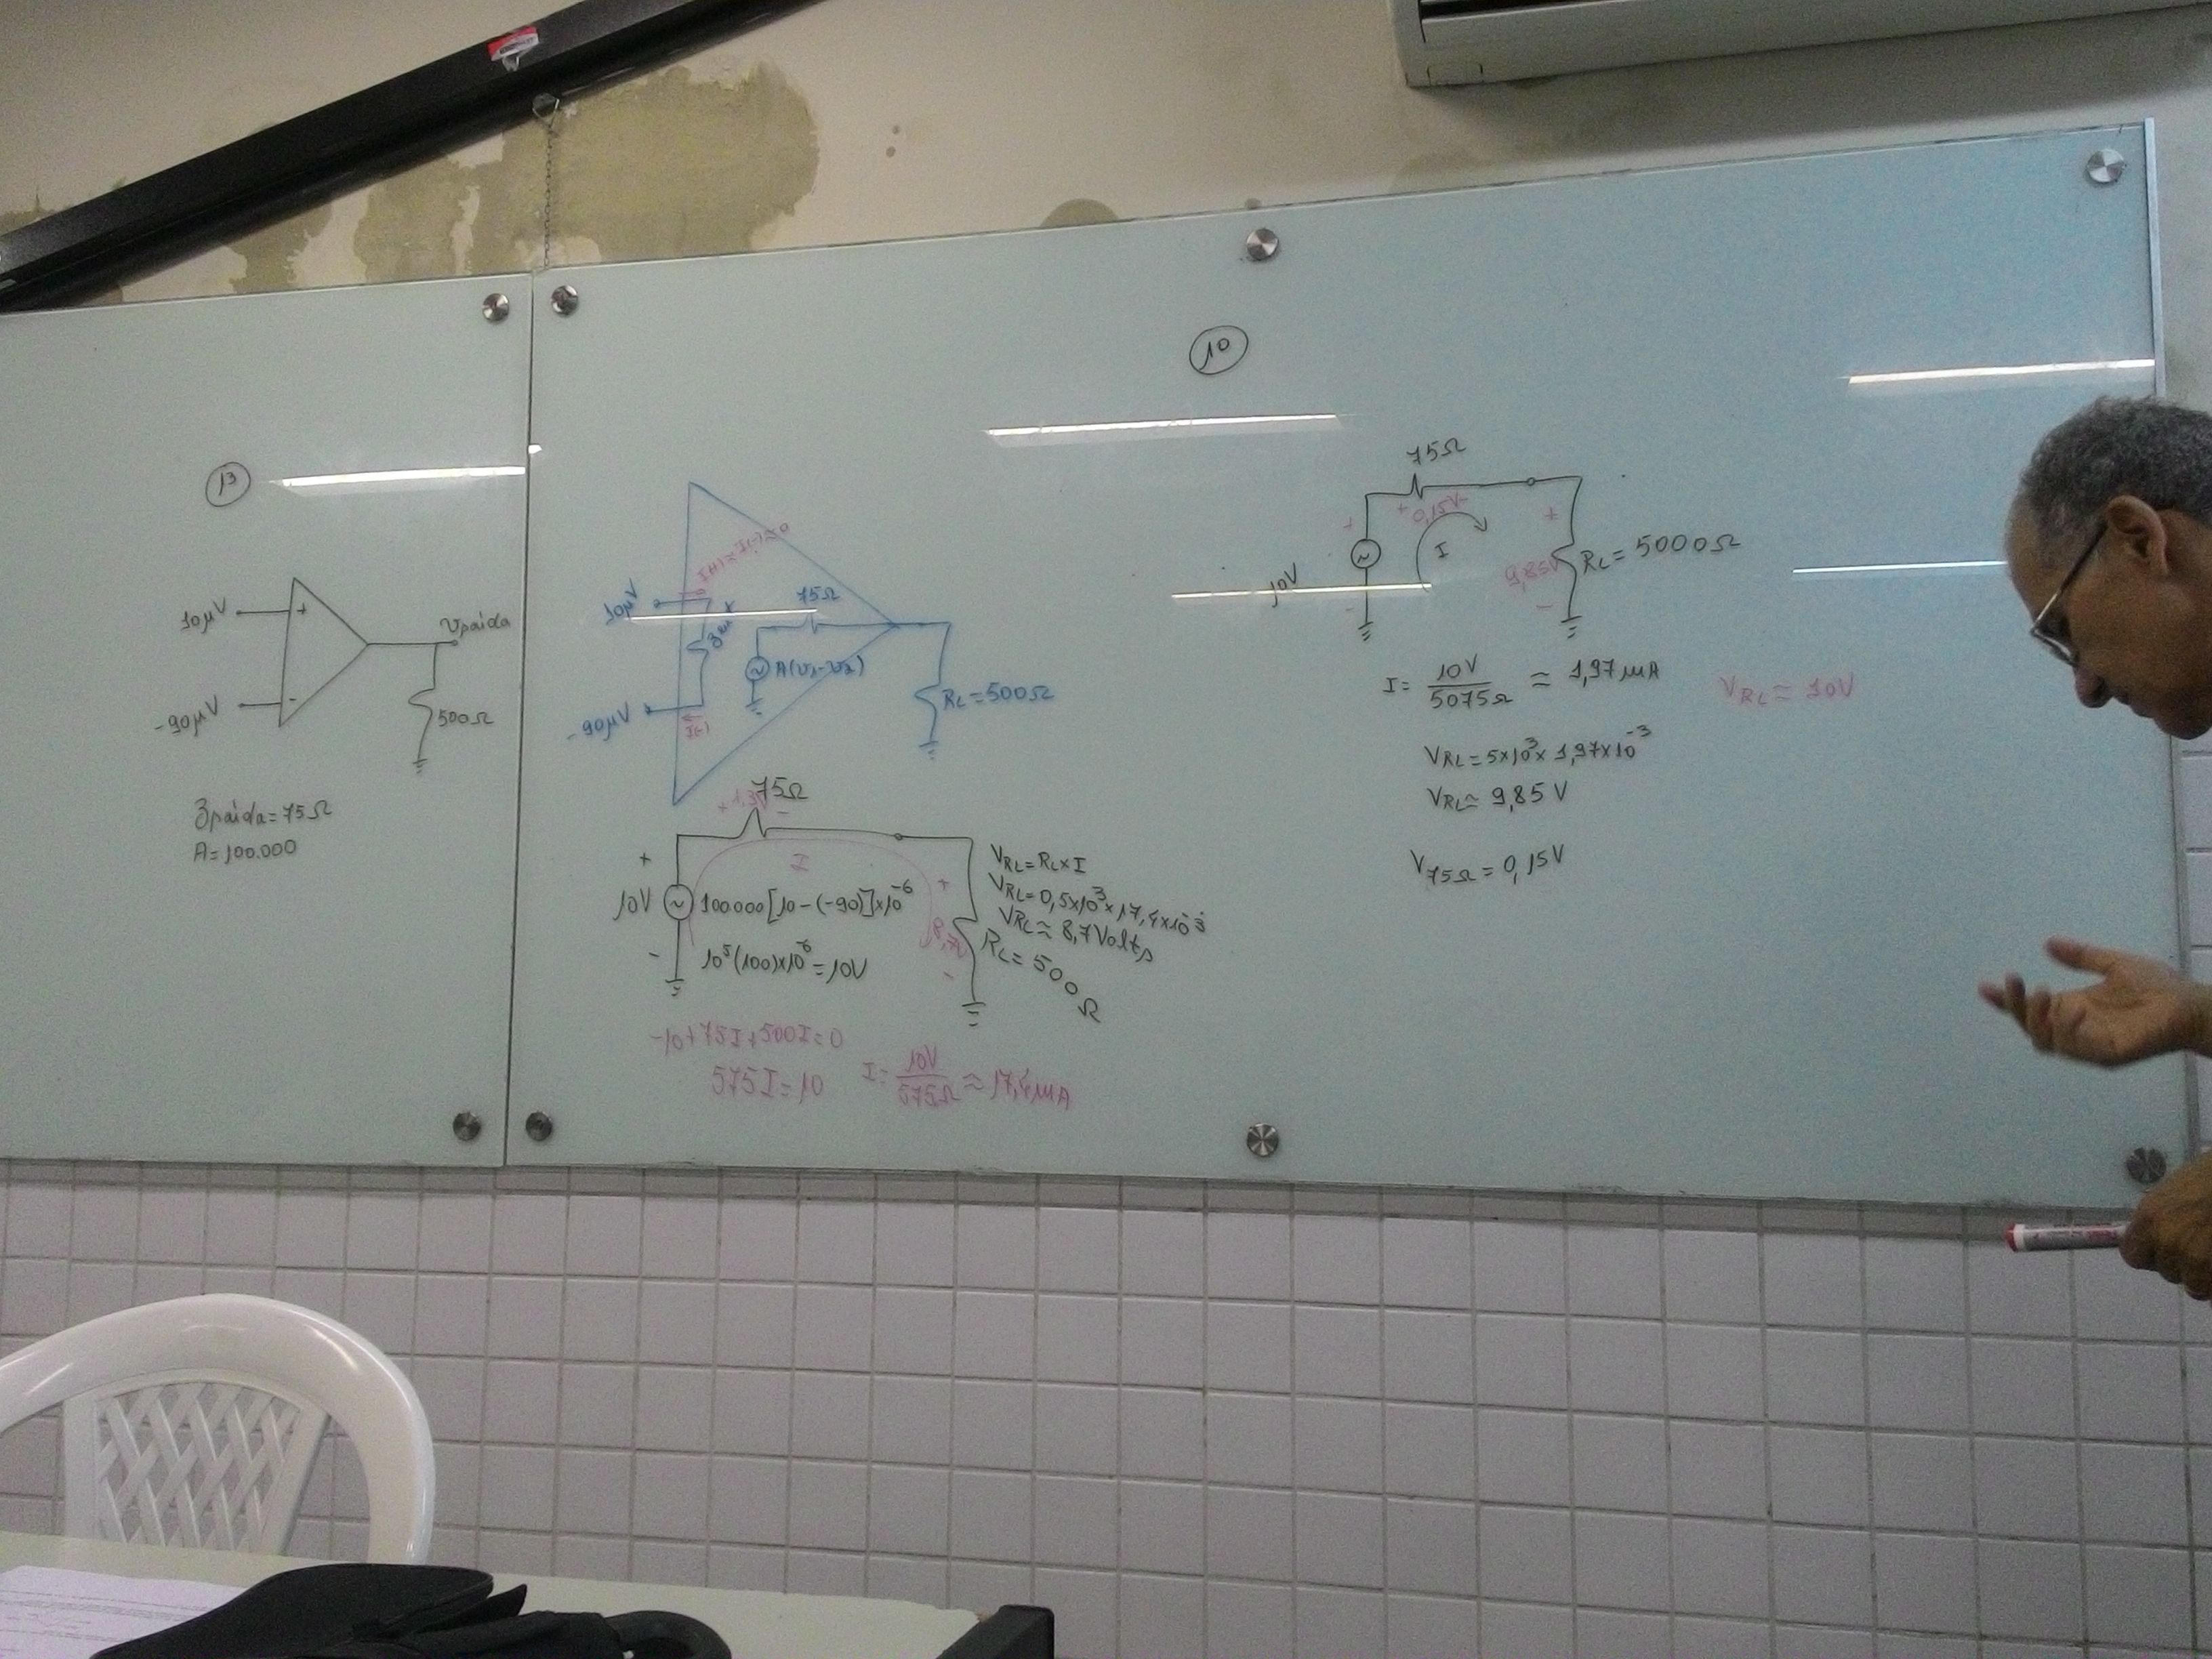 13
10μV
+
-90μV
-
vsaída
500Ω
Zsaída=75Ω
A=100.000
I(+)≈I(-)≈0
10μV
-90μV
I(-)
75Ω
A(v1-v2)
RL=500Ω
75Ω
+1,3V-
I
+
10V
-
100.000[10-(-90)]x10^-6
10^5(100)x10^-6=10V
+
8,7V
-
VRL=RLxI
VRL=0,5x10^3x17,4x10^-3
VRL≈8,7Volts
RL=500Ω
-10+75I+500I=0
575I=10
I=10V/575Ω≈17,4mA
10
75Ω
+0,15V-
I
+
10V
-
+
9,85V
-
RL=5000Ω
I=10V/5075Ω≈1,97mA
VRL≈10V
VRL=5x10^3x1,97x10^-3
VRL≈9,85V
V75Ω=0,15V